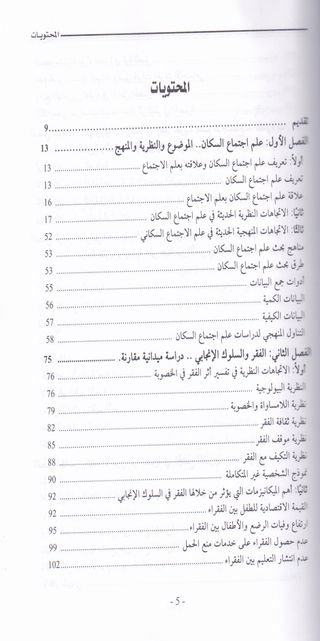 المحتويات
المحتويات
تقديم 9
الفصل الأول: علم اجتماع السكان.. الموضوع والنظرية والمنهج 13
أولاً: تعريف علم اجتماع السكان وعلاقته بعلم الاجتماع 13
تعريف علم اجتماع السكان 13
علاقة علم اجتماع السكان بعلم الاجتماع 16
ثانيًا: الاتجاهات النظرية الحديثة في علم اجتماع السكان 17
ثالثًا: الاتجاهات المنهجية الحديثة في علم الاجتماع السكاني 52
مناهج بحث علم اجتماع السكان 53
طرق بحث علم اجتماع السكان 53
أدوات جمع البيانات 55
البيانات الكمية 56
البيانات الكيفية 57
التناول المنهجي لدراسات علم اجتماع السكان 58
الفصل الثاني: الفقر والسلوك الإنجابي .. دراسة ميدانية مقارنة. 75
أولاً: الاتجاهات النظرية في تفسير أثر الفقر في الخصوبة 76
النظرية البيولوجية 76
نظرية اللامساواة والخصوبة 79
نظرية ثقافة الفقر 82
نظرية موقف الفقر 85
نظرية التكيف مع الفقر 88
نموذج الشخصية غير المتكاملة 90
ثانيًا: أهم الميكانيزمات التي يؤثر من خلالها الفقر في السلوك الإنجابي 92
القيمة الاقتصادية للطفل بين الفقراء 92
ارتفاع وفيات الرضع والأطفال بين الفقراء 95
عدم حصول الفقراء على خدمات منع الحمل 99
عدم انتشار التعليم بين الفقراء 102
- 5 -